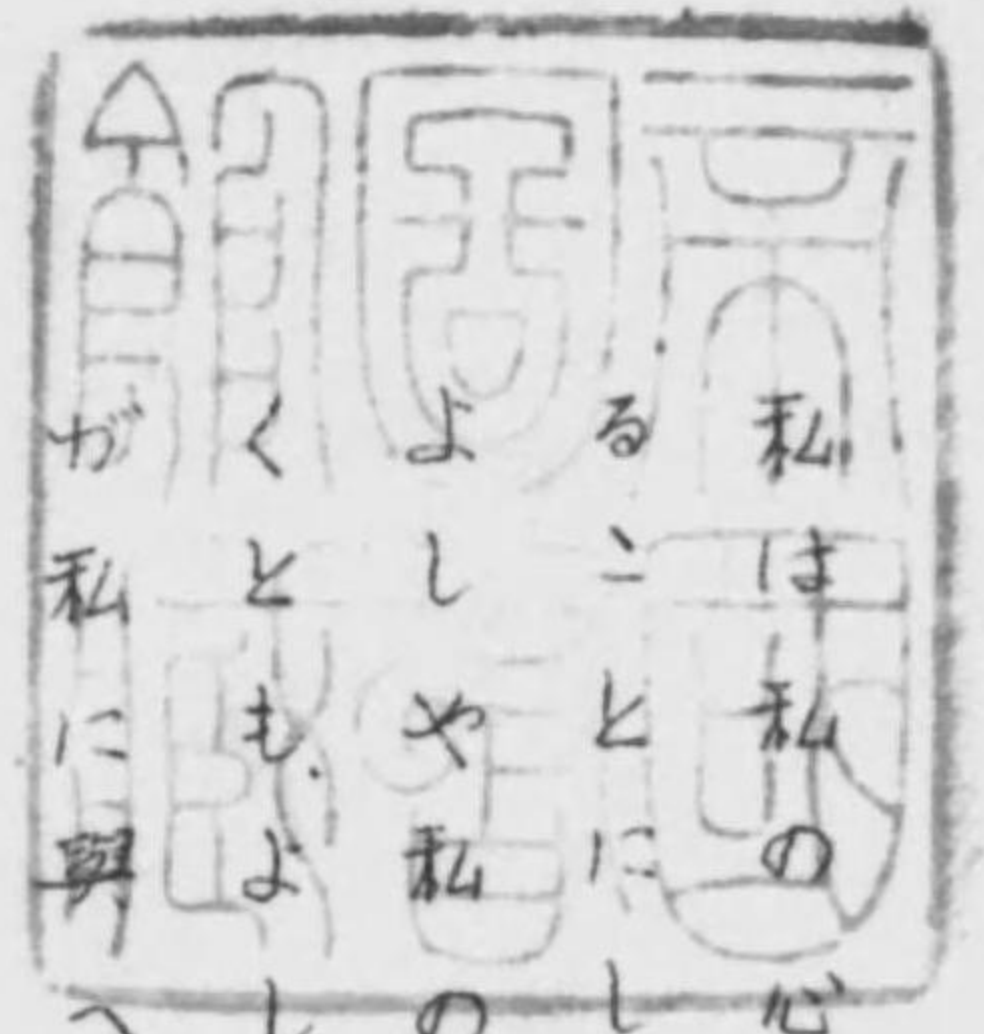 私は私の心
ることにし
よしや私の
くとも、よし
が私に與へ
帝國
圖書
館藏